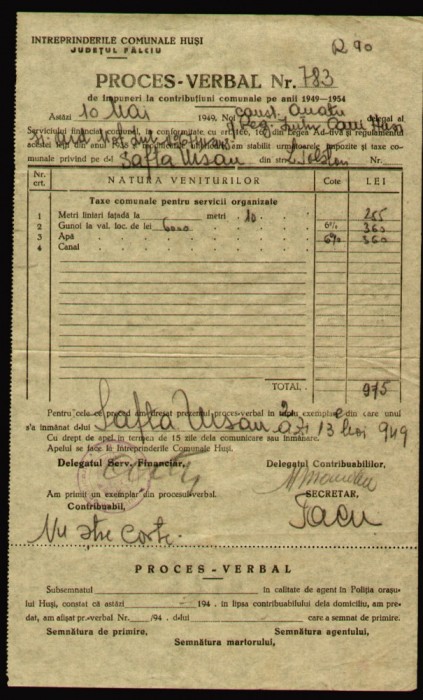 INTREPRINDERILE COMUNALE HUȘI
JUDEȚUL FĂLCIU
R 90
PROCES-VERBAL Nr. 783
de impuneri la contribuțiuni comunale pe anii 1949—1954
Astăzi 10 Mai 1949, Noi const. delegat al
Serviciului financiar comunal, in conformitate cu art. și regulamentul
acestei legi din anul am stabilit următoarele impozite și taxe co-
munale privind pe d-l Safta Ursan din str. L. Tolstoi Nr.
Nr. crt. NATURA VENITURILOR Cote LEI
Taxe comunale pentru servicii organizate
1 Metri liniari fațadă la metri 10 255
2 Gunoi la val. loc. de lei 6000 6% 360
3 Apă 6% 360
4 Canal
TOTAL 975
Pentru cele ce preced am dresat prezentul proces-verbal in 2 exemplare din care unul
s'a inmânat d-lui Safta Ursan azi 13 Mai 949
Cu drept de apel in termen de 15 zile dela comunicare sau inmânare.
Apelul se face la Intreprinderile Comunale Huși.
Delegatul Serv. Financiar, Delegatul Contribuabililor,
Am primit un exemplar din procesul-verbal. SECRETAR,
Contribuabil,
Nu știe carte.
PROCES-VERBAL
Subsemnatul in calitate de agent in Poliția orașu-
lui Huși, constat că astăzi 194 . in lipsa contribuabilului dela domiciliu, am pre-
dat, am afișat pr.-verbal Nr. /94 . d-lui care a semnat de primire.
Semnătura de primire, Semnătura agentului,
Semnătura martorului,